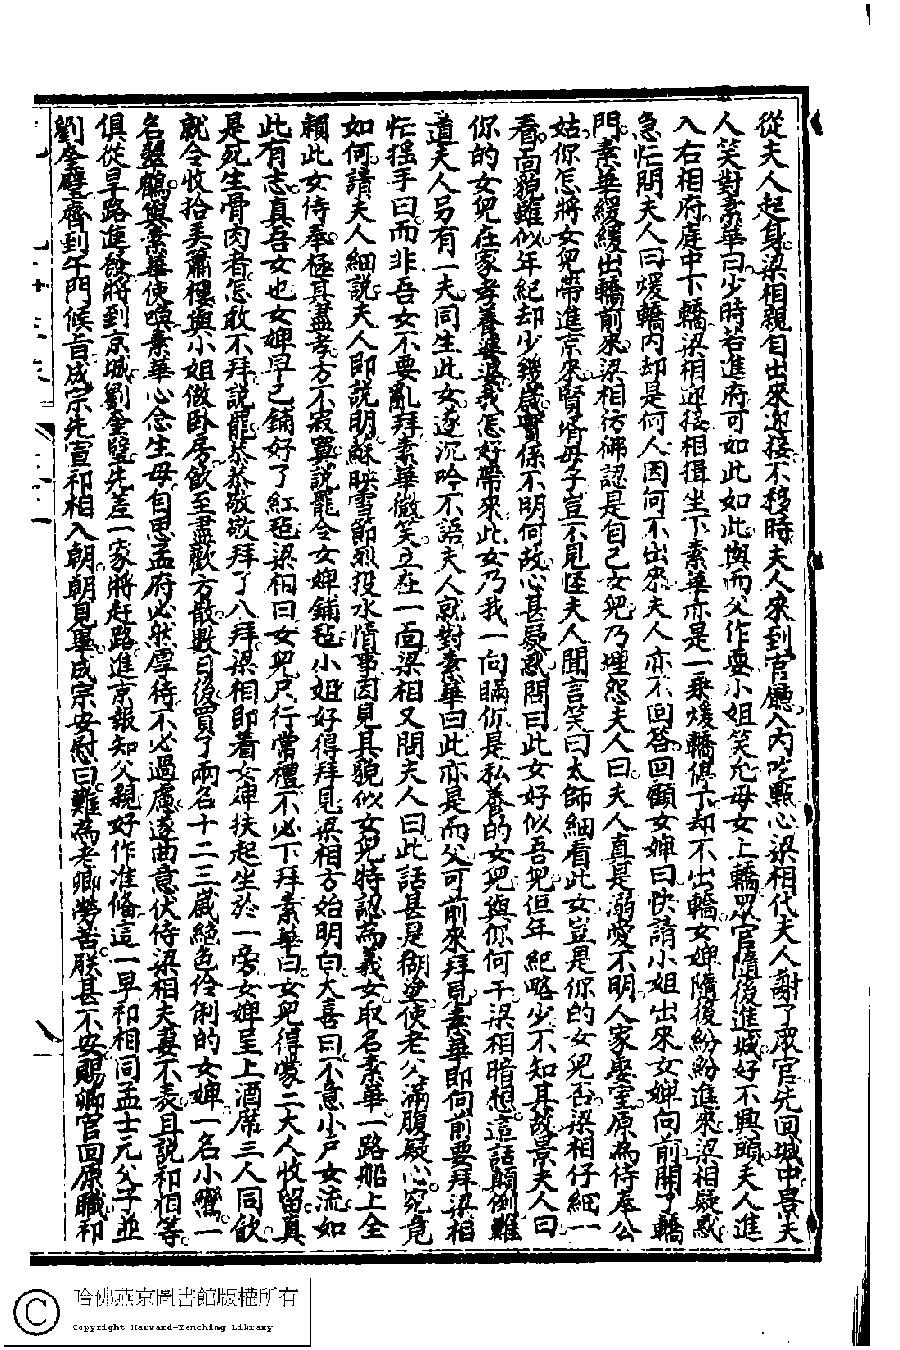 從夫人起身梁相親自出來迎接不移時夫人來到官廳入內吃點心梁相代夫人謝了衆官先回城中景夫
人笑對素華曰少時若進府可如此如此與而父作耍小姐笑允母女上轎眾官隨後進城好不興頭夫人進
入右相府庭中下轎梁相迎接相揖坐下素華亦是一乘煖轎俱下却不出轎女婢隨後紛紛進來梁相疑惑
急忙問夫人曰煖轎內却是何人因何不出來夫人亦不回答回顧女婢曰快請小姐出來女婢向前開了轎
門素華緩緩出轎前來梁相彷彿認是自己女兒乃埋怨夫人曰夫人真是溺愛不明人家娶室原為侍奉公
姑你怎將女兒帶進京來賢壻母子豈不見怪夫人聞言笑曰太師細看此女豈是你的女兒否梁相仔細一
看面貌雖似年紀却少幾歲實係不明何故心甚疑惑問曰此女好似吾兒但年紀略少不知其故景夫人曰
你的女兒在家孝養婆婆我怎好帶來此女乃我一向瞞你是私養的女兒與你何干梁相暗想這話顛倒難
道夫人另有一夫同生此女遂沉吟不語夫人就對素華曰此亦是而父可前來拜見素華即向前要拜梁相
忙搖手曰而非吾女不要亂拜素華微笑立在一面梁相又問夫人曰此話甚是糊塗使老公滿腹疑心究竟
如何請夫人細說夫人即說明蘇映雪節烈投水情事因見其貌似女兒特認為義女取名素華一路船上全
賴此女侍奉極其盡孝方不寂寞說罷令女婢鋪毡小姐好得拜見梁相方始明白大喜曰不意小戶女流如
此有志真吾女也女婢早已鋪好了紅毡梁相曰女兒只行常禮不必下拜素華曰女兒得蒙二大人收留真
是死生骨肉者怎敢不拜說罷恭恭敬敬拜了八拜梁相即着女婢扶起坐於一旁女婢呈上酒席三人同飲
就令收拾弄簫樓與小姐做卧房飲至盡歡方散數日後買了兩名十二三歲絕色伶俐的女婢一名小鸞一
名翠鶴與素華使喚素華心念生母自思孟府必然厚待不必過慮遂曲意伏侍梁相夫妻不表且說祁相等
俱從早路進發將到京城劉奎璧先差一家將赶路進京報知父親好作准備這一早祁相同孟士元父子並
劉奎璧齊到午門候旨成宗先宣祁相入朝朝見畢成宗安慰曰難為老卿勞苦朕甚不安賜卿官回原職祁
哈佛燕京圖書館版權所有
Copyright Harvard-Yenching Library